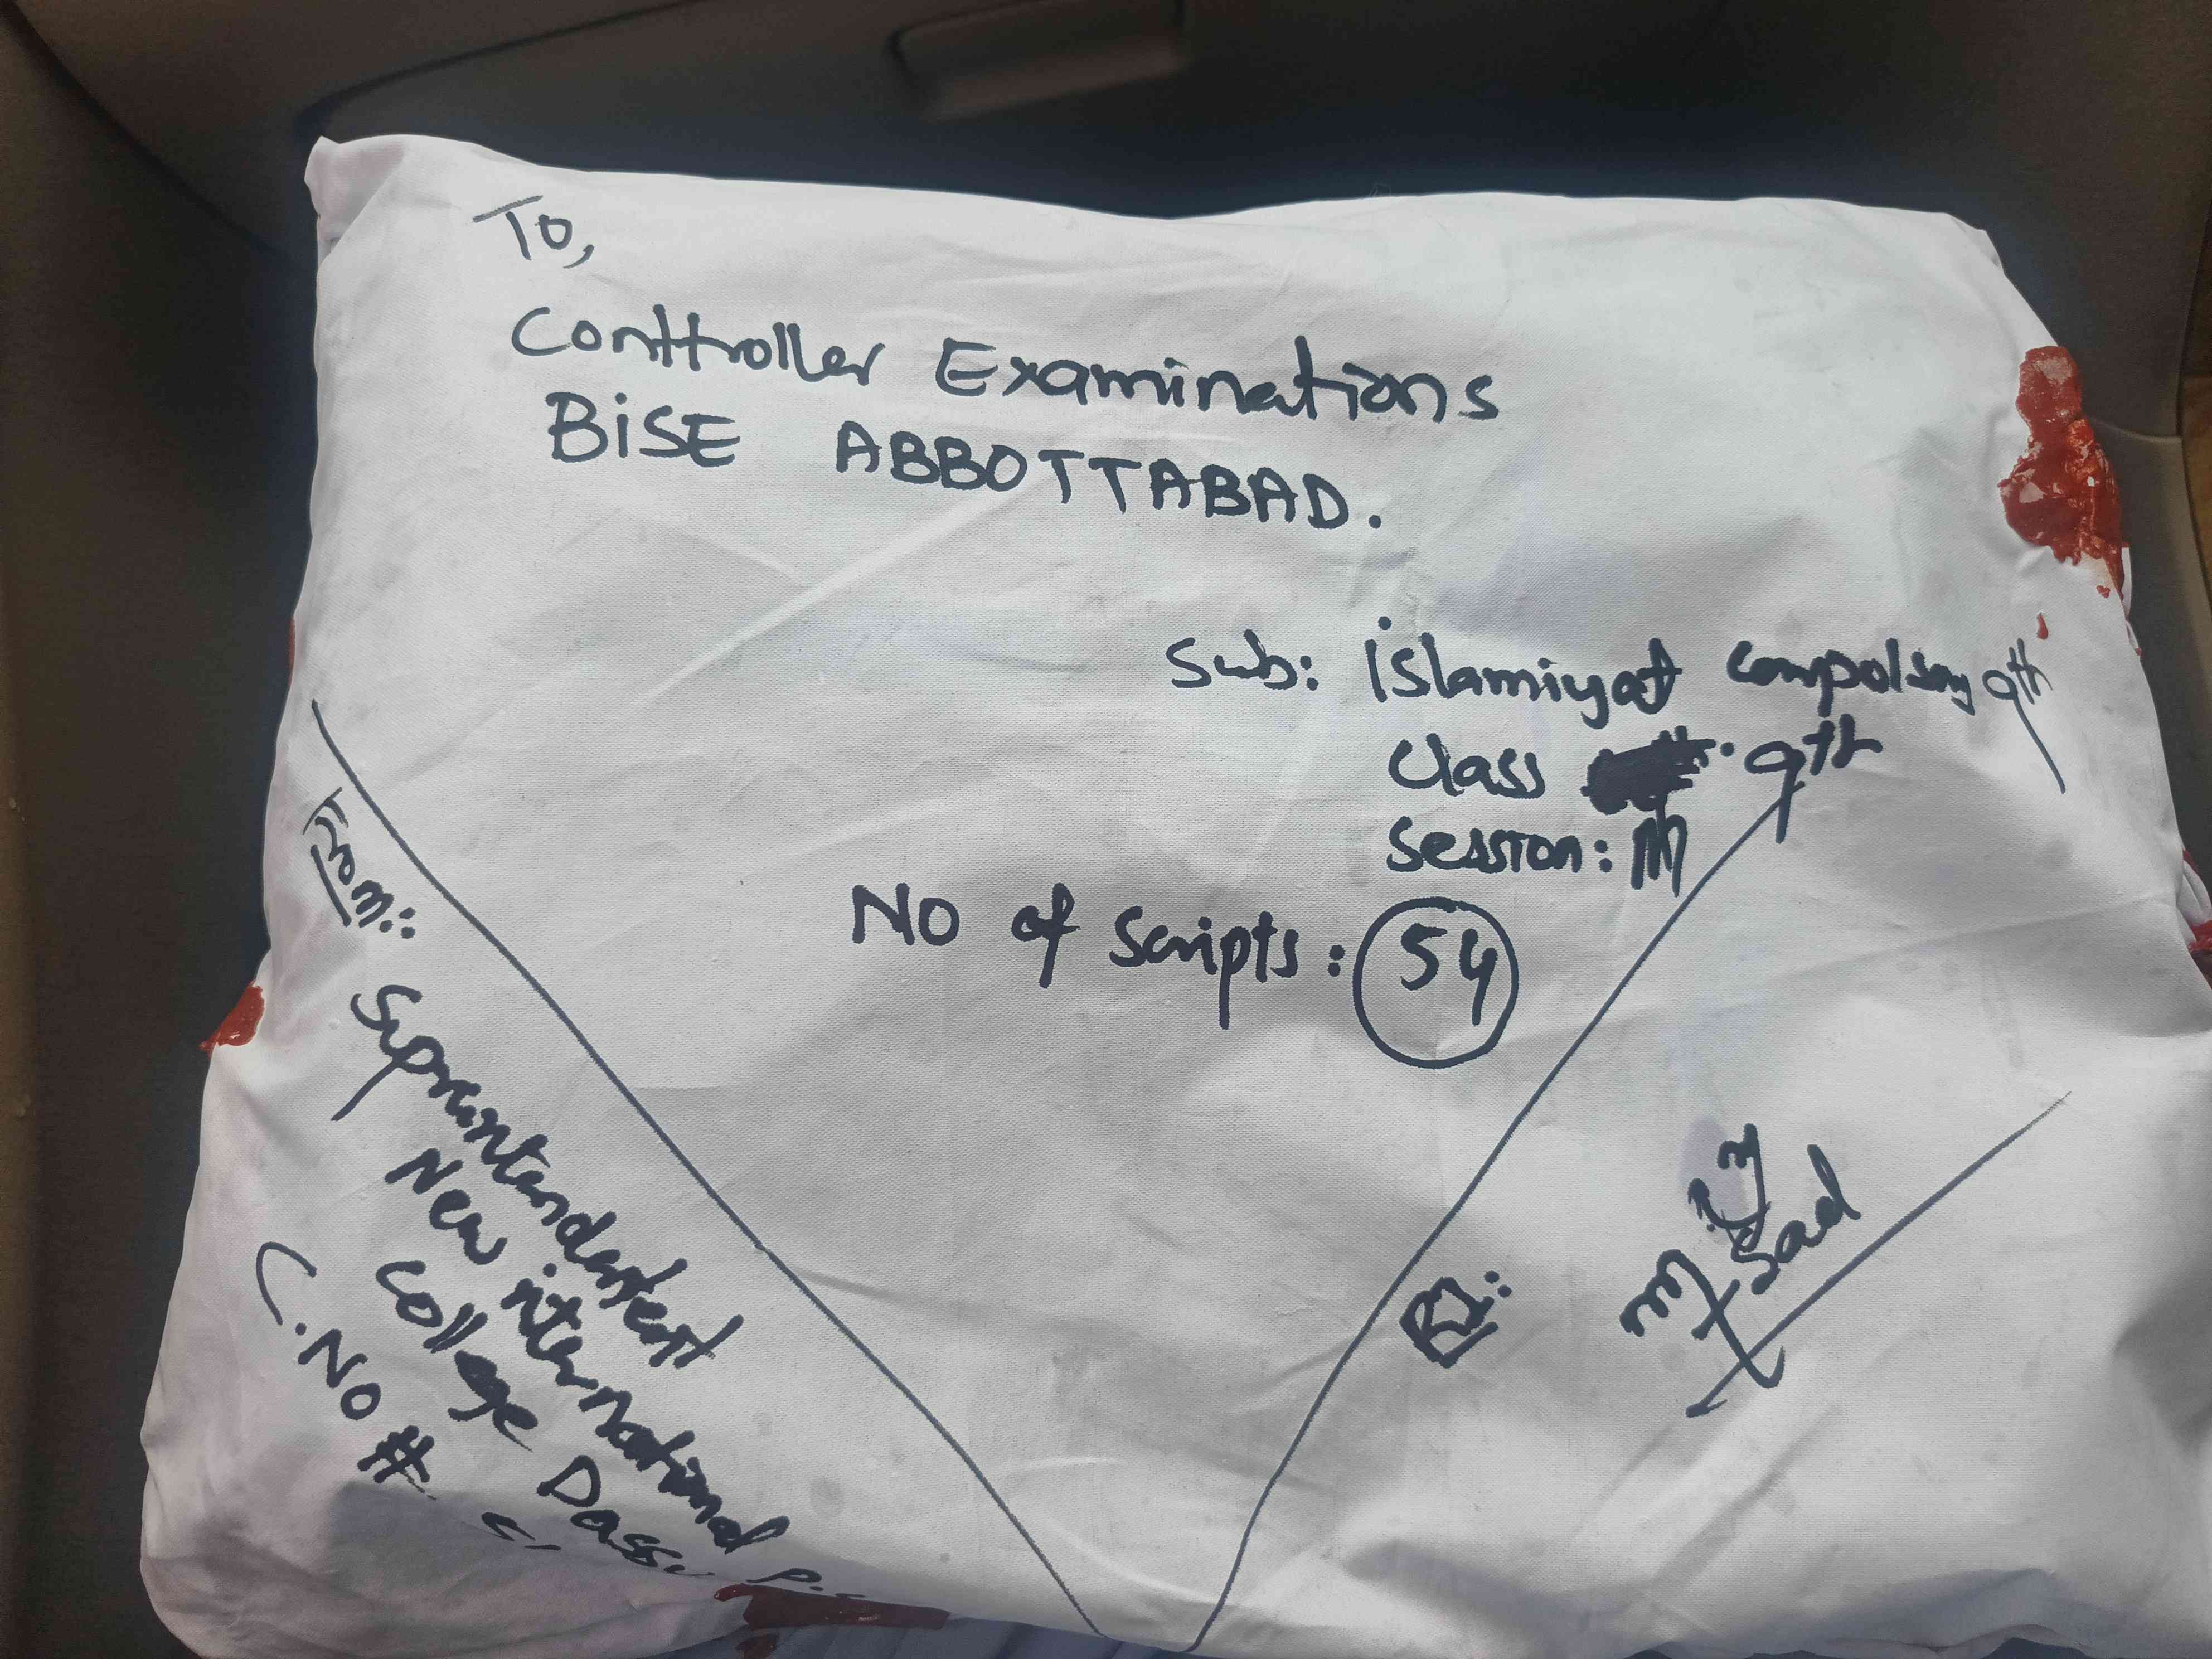 To,
Conttroller Examinations
BiSE ABBOTTABAD.
Sub: islamiyat compolsory 9th
Class 9th
Session: M
No of Scripts: 54
From:
Supraintendentent
New international
College Dassu
C.No #
RI:
Sad